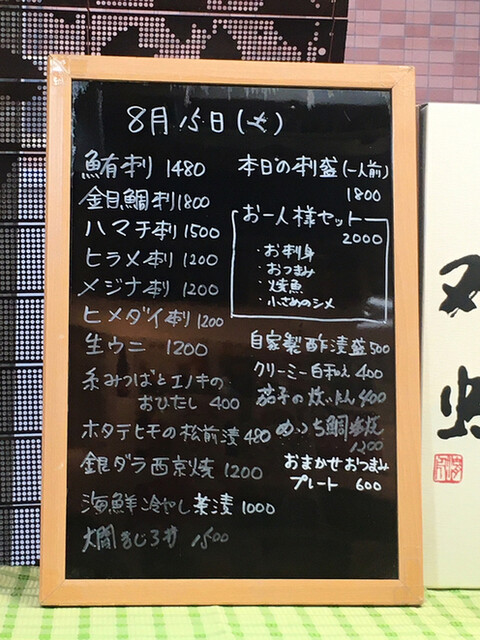 8月15日(土)
鮪刺 1480
金目鯛刺 1800
ハマチ刺 1500
ヒラメ刺 1200
メジナ刺 1200
ヒメダイ刺 1200
生ウニ 1200
糸みつばとエノキの
おひたし 400
ホタテヒモの松前漬 480
銀ダラ西京焼 1200
海鮮冷やし茶漬 1000
まじろ丼 1500
本日の刺盛(一人前)
1800
お一人様セット
2000
・お刺身
・おつまみ
・焼魚
・小さめのシメ
自家製酢漬盛 500
クリーミー白和え 400
茄子の炊いたん 400
鯛 1200
おまかせおつまみ
プレート 600